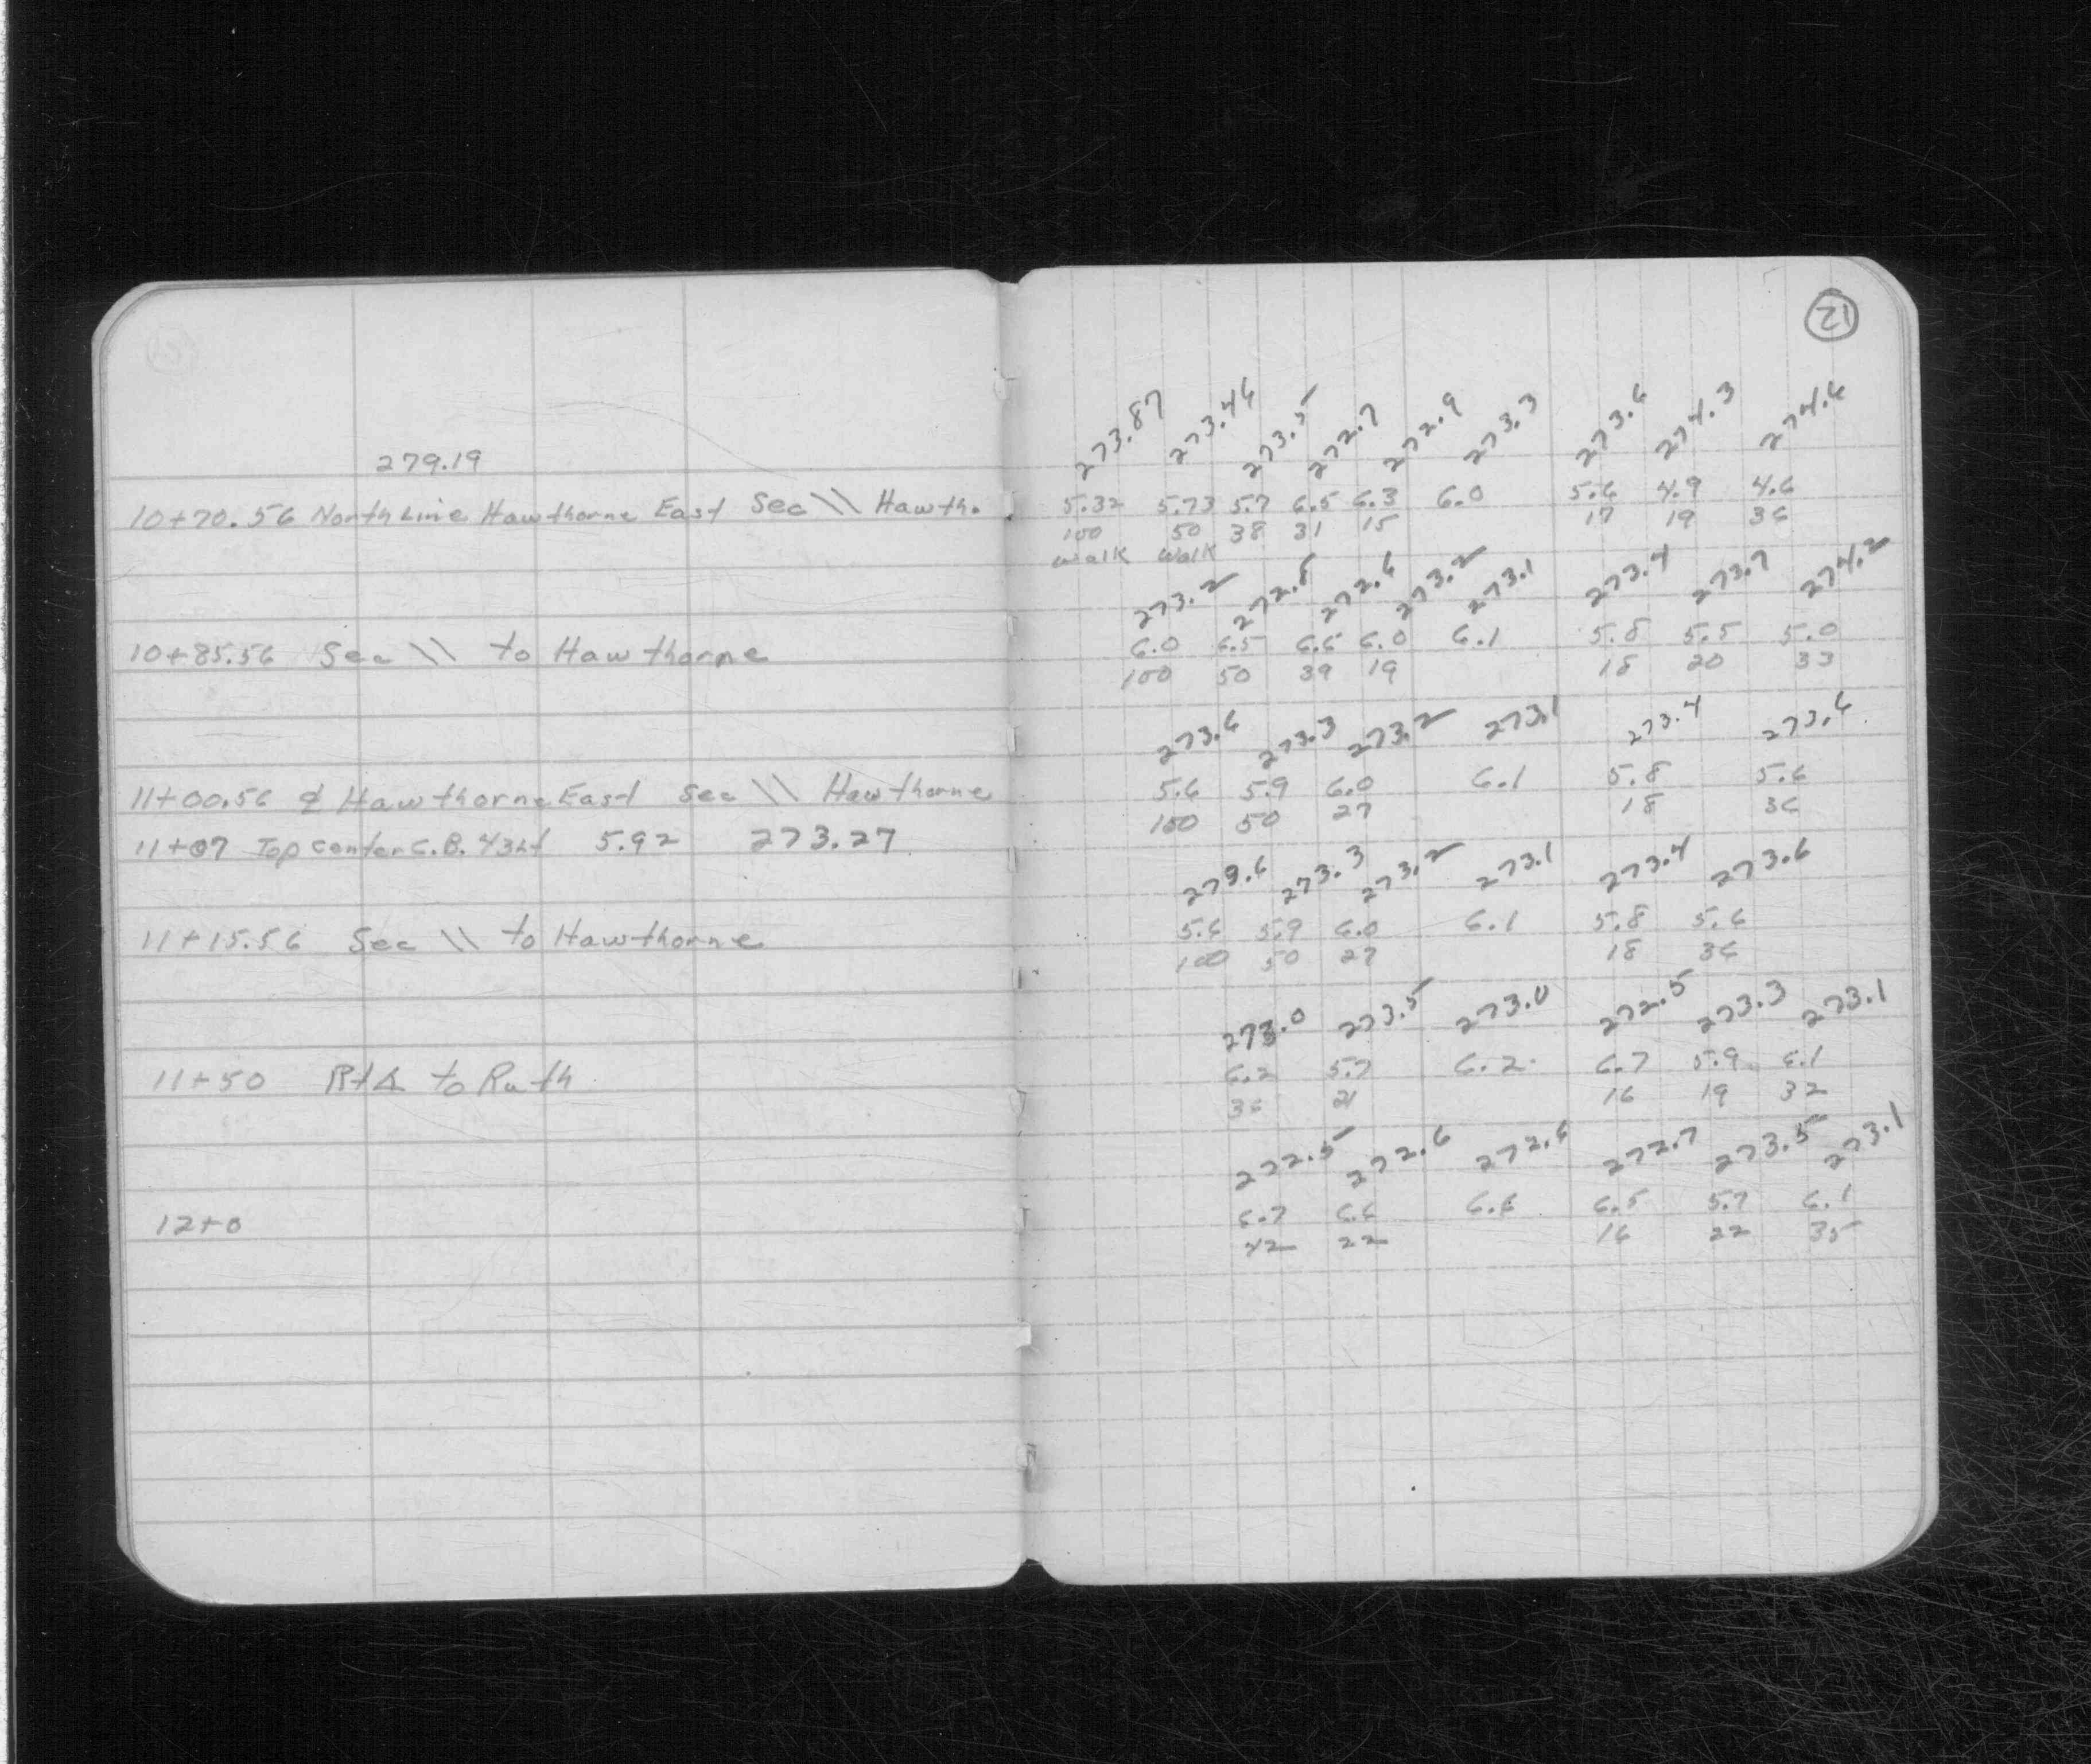 279.19
10+70.56 North Line Hawthorne East Sec \\ Hawth.
10+85.56 Sec \\ to Hawthorne
11+00.56 ⅊ Hawthorne East Sec \\ Hawthorne
11+07 Top Center C.B. 43Lt 5.92 273.27
11+15.56 Sec \\ to Hawthorne
11+50 Rt∠ to Ruth
12+0
12
273.87 273.46 273.5 272.7 272.9 273.3 273.6 274.3 274.6
5.32 5.73 5.7 6.5 6.3 6.0 5.6 4.9 4.6
100 50 38 31 15 17 19 36
walk walk
273.2 272.8 272.6 273.2 273.1 273.4 273.7 274.2
6.0 6.5 6.6 6.0 6.1 5.8 5.5 5.0
100 50 39 19 18 20 33
273.6 273.3 273.2 273.1 273.4 273.6
5.6 5.9 6.0 6.1 5.8 5.6
100 50 27 18 36
273.6 273.3 273.2 273.1 273.4 273.6
5.6 5.9 6.0 6.1 5.8 5.6
100 50 27 18 36
273.0 273.5 273.0 272.5 273.3 273.1
6.2 5.7 6.2 6.7 5.9 6.1
36 21 16 19 32
272.5 272.6 272.6 272.7 273.5 273.1
6.7 6.6 6.6 6.5 5.7 6.1
42 22 16 22 35